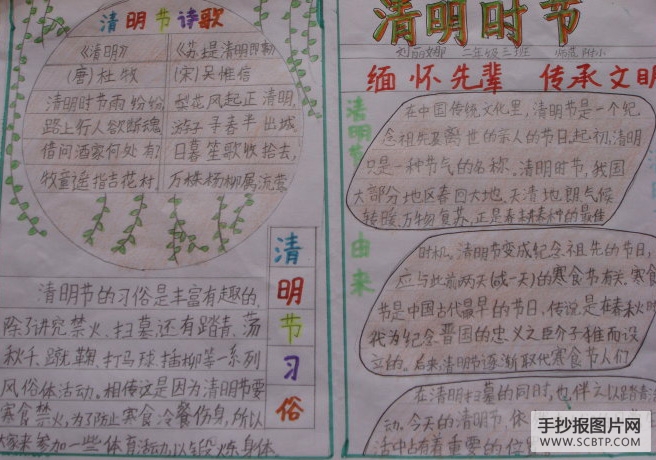 清明节诗歌
《清明》
(唐)杜牧
清明时节雨纷纷
路上行人欲断魂
借问酒家何处有?
牧童遥指吉花村
《苏提清明即事》
(宋)吴惟信
梨花风起正清明,
游子寻春半出城
日暮笙歌收拾去,
万株杨柳属流莺
清明节习俗
清明节的习俗是丰富有趣的,
除了讲究禁火、扫墓,还有踏青、荡
秋千、蹴鞠、打马球、插柳等一系列
风俗体活动。相传这是因为清明节要
寒食禁火,为了防止寒食冷餐伤身,所以
大家来参加一些体育活动,以锻炼身体
清明时节
二年级三班 附小
缅怀先辈 传承文明
清明节由来
在中国传统文化里,清明节是一个纪
念祖先及离世的亲人的节日。起初,清明
只是一种节气的名称。清明时节,我国
大部分地区春回大地,天清地朗气候
转暖,万物复苏,正是春耕春种的最佳
时机。清明节变成纪念祖先的节日,
应与此前两天(或一天)的寒食节有关。寒食
节是中国古代最早的节日,传说是在春秋时
我为纪念晋国的忠义之臣介子推而设
立的。后来,清明节逐渐取代寒食节人们
在清明扫墓的同时,也伴之以踏青活
动。今天的清明节,依
活中占有着重要的位置
手抄报图片网
WWW.SCBTP.COM